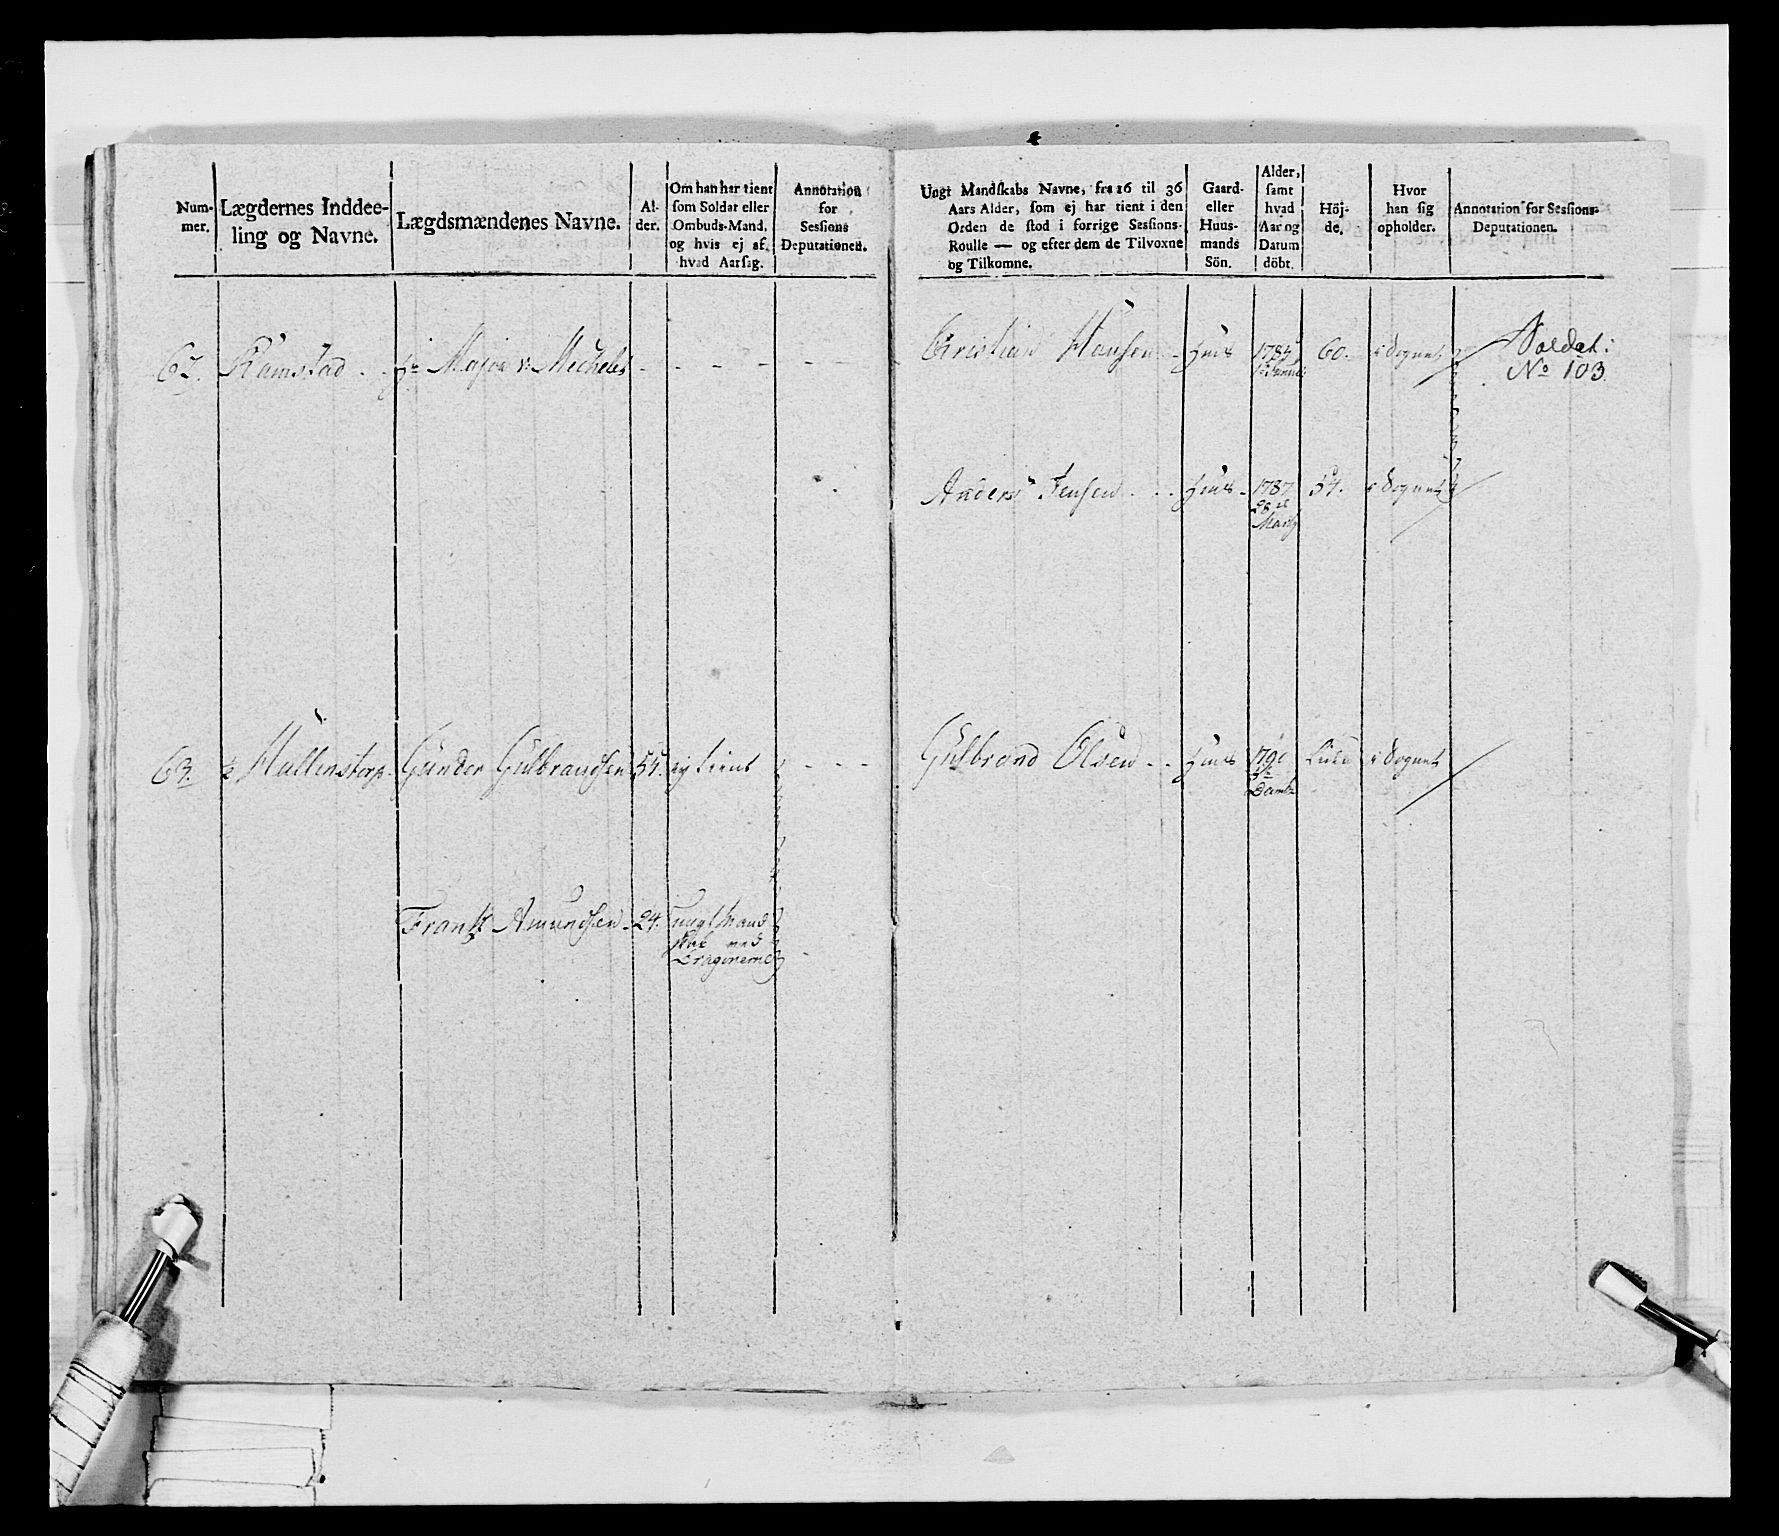 Num-
mer.
Lægdernes Inddee-
ling og Navne.
Lægdsmændenes Navne.
Al-
der.
Om han har tient
som Soldat eller
Ombuds-Mand,
og hvis ej af
hvad Aarsag.
Annotation
for
Sessions
Deputationen.
Ungt Mandskabs Navne, fra 16 til 36
Aars Alder, som ej har tient i den
Orden de stod i forrige Sessions-
Roulle — og efter dem de Tilvoxne
og Tilkomne.
Gaard-
eller
Huus-
mands
Sön.
Alder,
samt
hvad
Aar og
Datum
döbt.
Höj-
de.
Hvor
han sig
opholder.
Annotation for Sessions-
Deputationen.
62. Ramstad Major v: Michelet
Christian Hansen Huus 60. i Sognet
Soldat:
No 103
Anders Jensen Huus 1787 i Sognet
28
Marty
63. Hallenstorp Gunder Gulbrandsen ej tient
Gulbrand Olsen Huus 1790 Liden i Sognet
Frantz Amundsen 24. ungt Mand
skab ved
Dragonerne